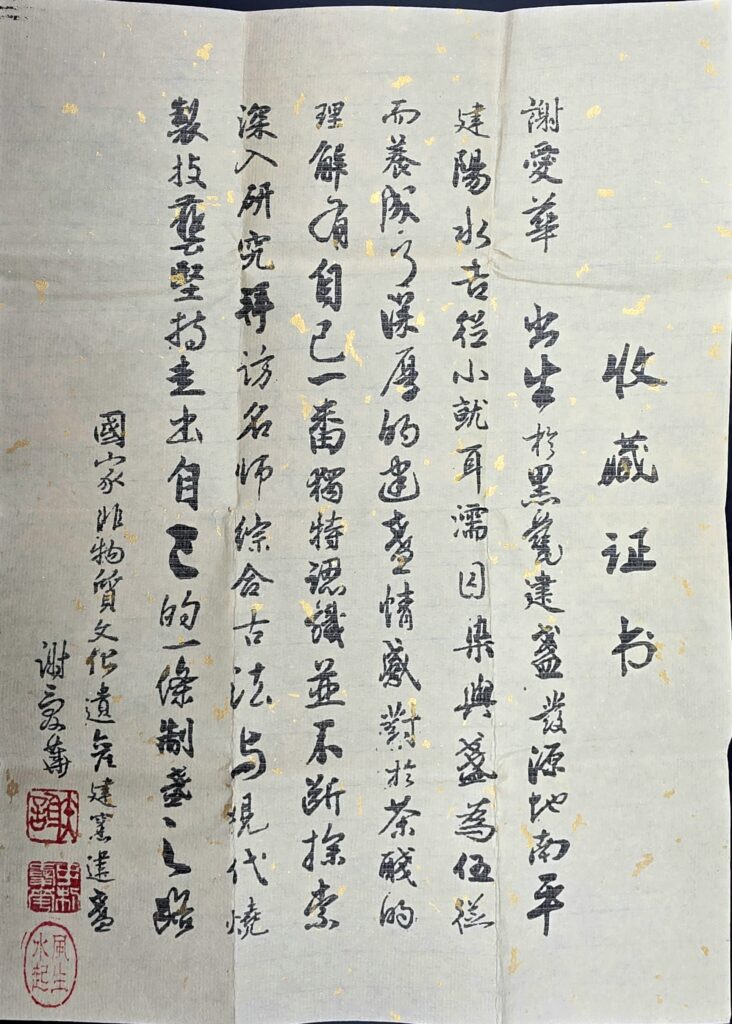 收藏证书
謝愛華 出生於黑瓷建盞發源地南平
建陽水吉從小就耳濡目染與盞為伍從
而養成了深厚的建盞情感對於茶醆的
理解有自己一番獨特認識並不斷探索
深入研究尋訪名师綜合古法与現代燒
製技藝堅持走出自己的一條制盞之路
國家非物質文化遺產建窯建盞
谢爱華
風生水起